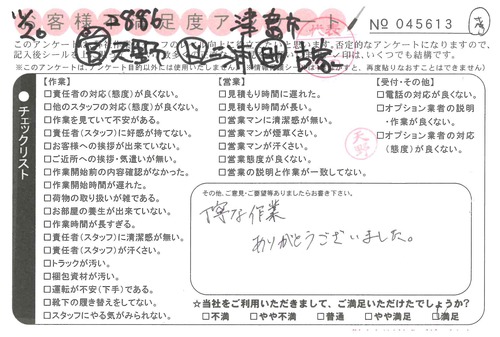 お客様満足度アンケート
11/20
2886
津島市
No 045613
このアンケートは
否定的なアンケートになりますので、
記入後シールを
印は、いくつでも結構です。
※このアンケートは、アンケート目的以外には使用いたしません。
再度貼りなおすことはできません)
天野
チェックリスト
【作業】
□責任者の対応(態度)が良くない。
□他のスタッフの対応(態度)が良くない。
□作業を見ていて不安がある。
□責任者(スタッフ)に好感が持てない。
□お客様への挨拶が出来ていない。
□ご近所への挨拶・気遣いが無い。
□作業開始前の内容確認がなかった。
□作業開始時間が遅れた。
□荷物の取り扱いが雑である。
□お部屋の養生が出来ていない。
□作業時間が長すぎる。
□責任者(スタッフ)に清潔感が無い。
□責任者(スタッフ)が汗くさい。
□トラックが汚い。
□梱包資材が汚い。
□運転が不安(下手)である。
□靴下の履き替えをしてない。
□スタッフにやる気がみられない。
【営業】
□見積もり時間に遅れた。
□見積もり時間が長い。
□営業マンに清潔感が無い。
□営業マンが煙草くさい。
□営業マンが汗くさい。
□営業態度が良くない。
□営業の説明と作業が一致してない。
【受付・その他】
□電話の対応が良くない。
□オプション業者の説明
・作業が良くない。
□オプション業者の対応
(態度)が良くない。
天野
その他、ご意見・ご要望等ありましたらお書き下さい。
丁寧な作業
ありがとうございました。
☆当社をご利用いただきまして、ご満足いただけたでしょうか?
□不満 □やや不満 □普通 □やや満足 □満足